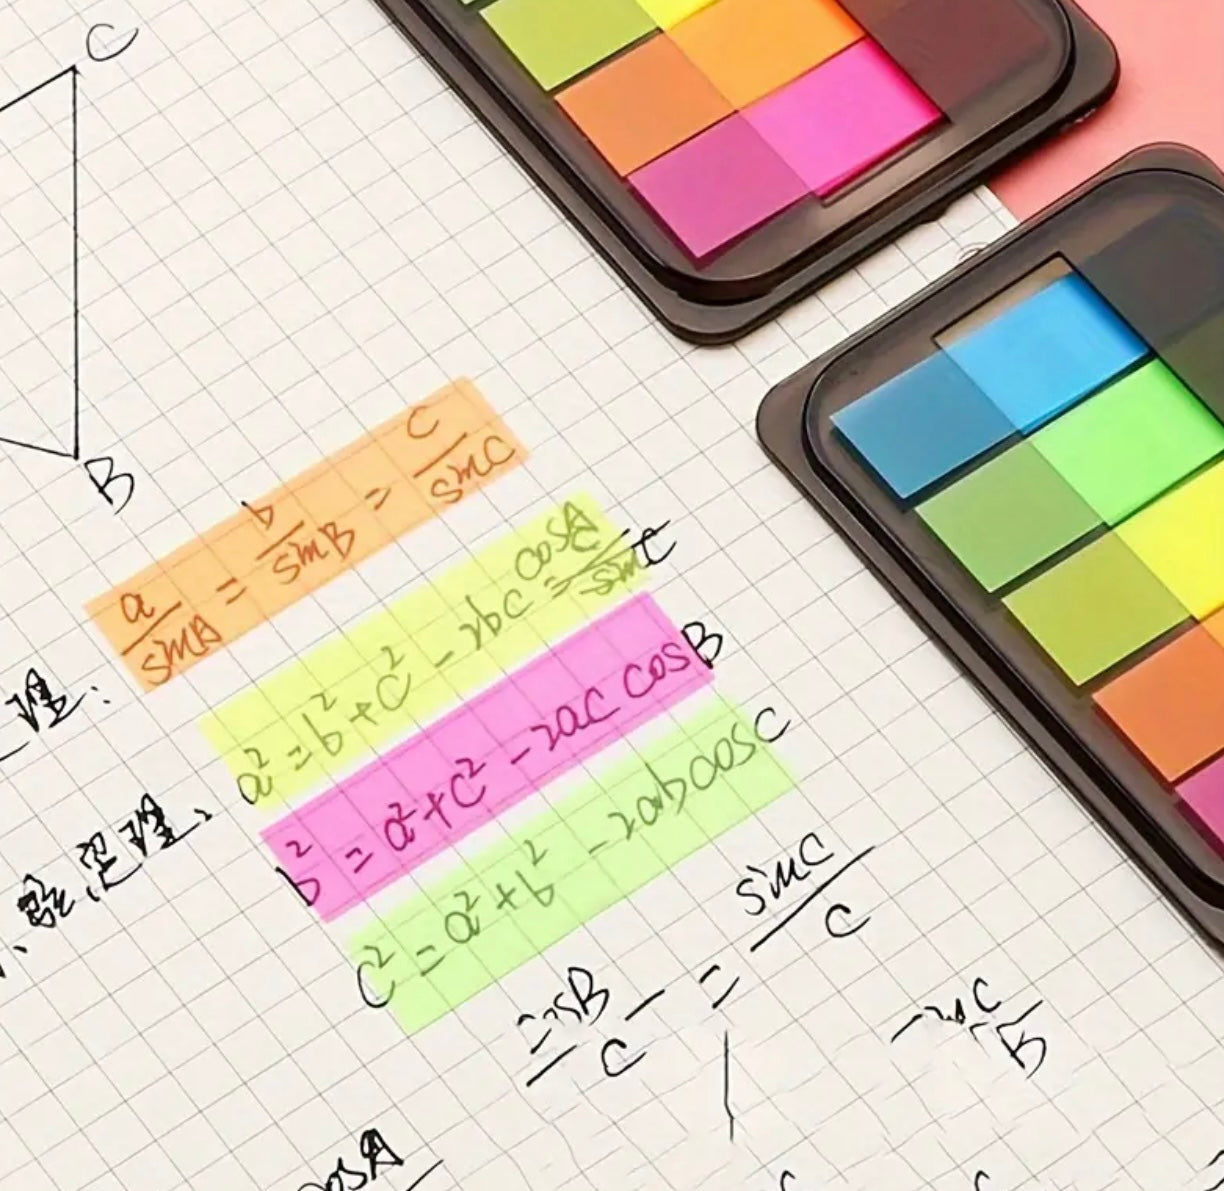 C
B
a/sinA = b/sinB = c/sinC
理:
a² = b² + c² - 2bc cosA
定理:
b² = a² + c² - 2ac cosB
c² = a² + b² - 2ab cosC
cosB/C = sinC/C
B
cosA